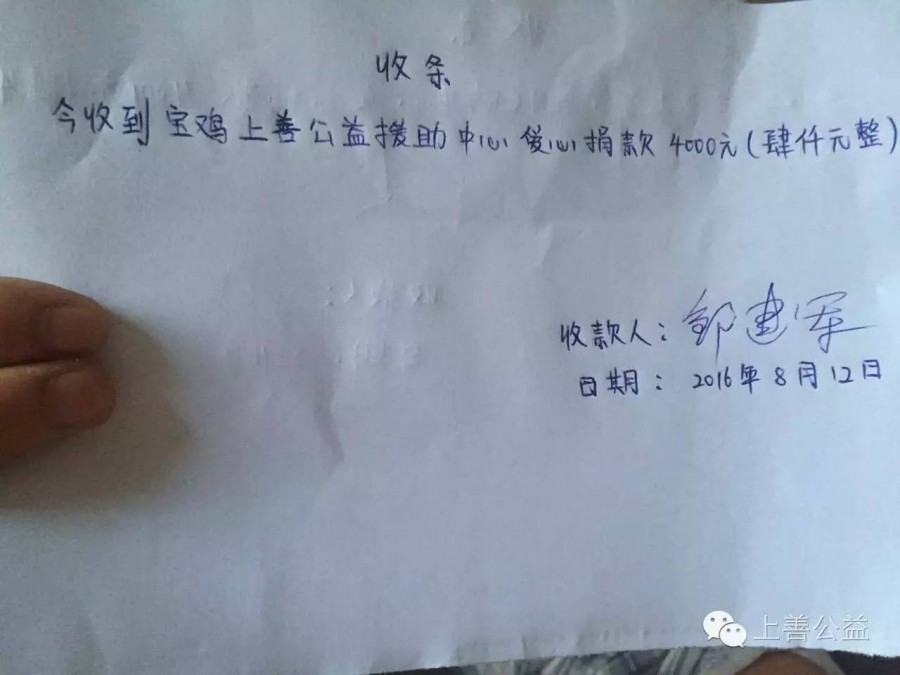 收条
今收到宝鸡上善公益援助中心爱心捐款4000元(肆仟元整)
收款人:邹建军
日期:2016年8月12日
上善公益